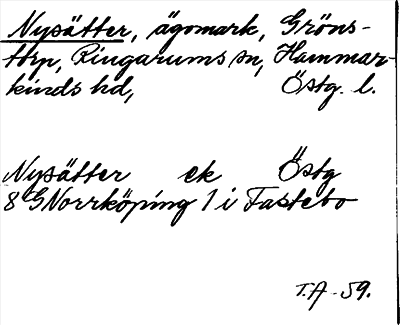 Nysätter, ägomark, Gröns-
torp, Ringarums sn, Hammar-
kinds hd, Östg. l.
Nysätter ek Östg
8 G Norrköping 1 i Fastebo
T.A. 59.